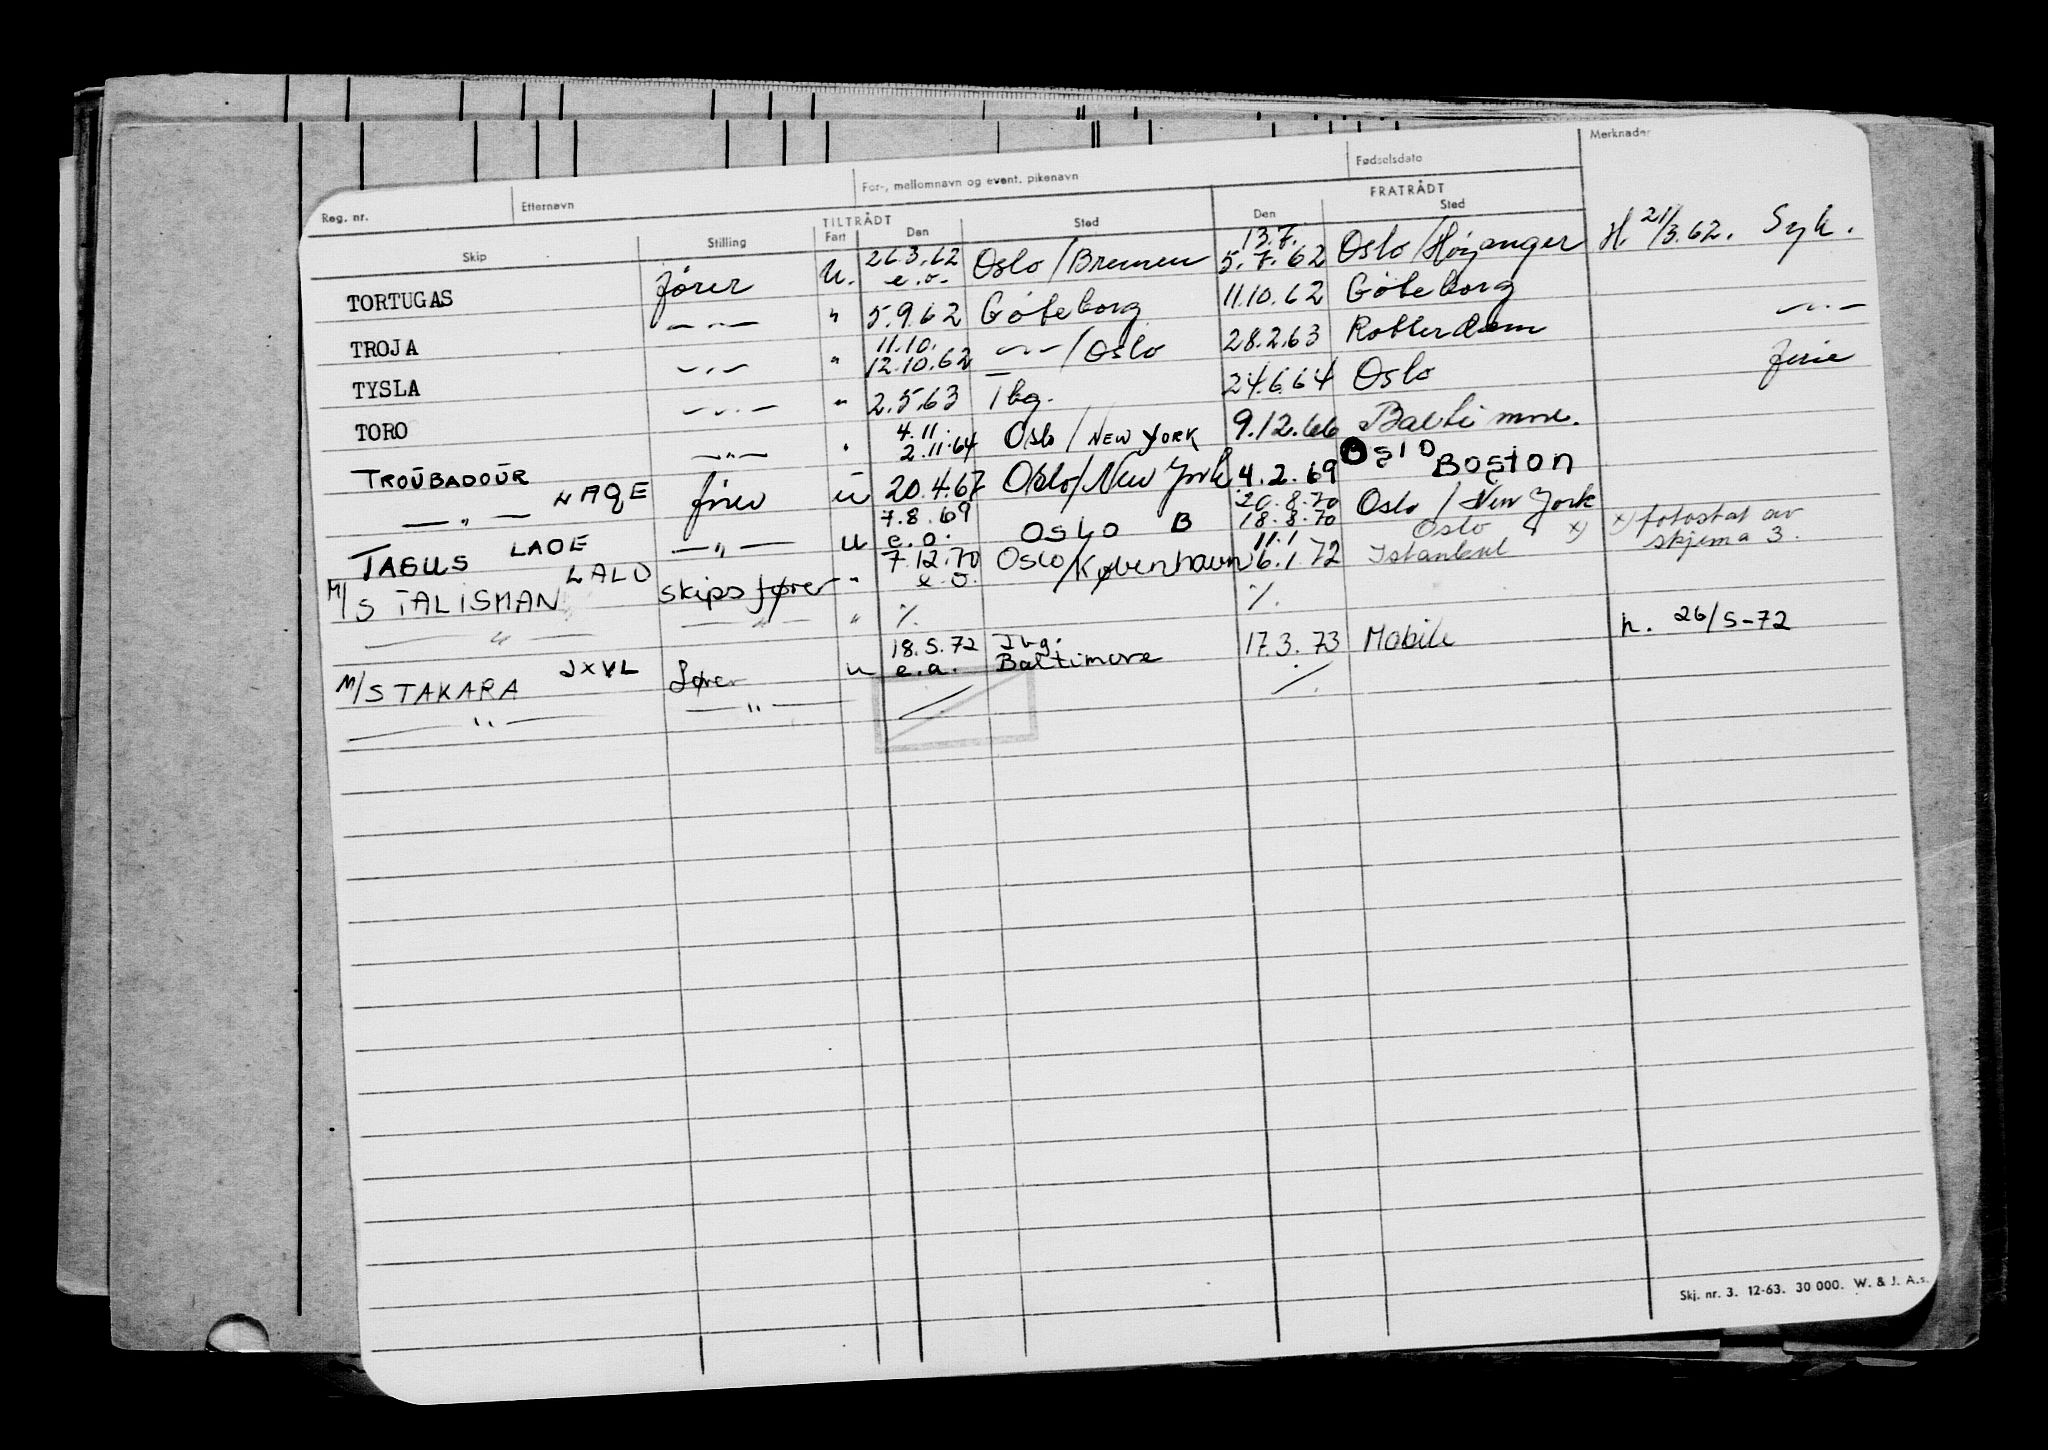 Reg. nr. Etternavn For-, mellomnavn og event. pikenavn Fødselsdato Merknader
TILTRÅDT FRATRÅDT
Skip Stilling Fart Den Sted Den Sted
26.3.62 13.7.
TORTUGAS fører U. e.o. Oslo/Bremen 5.7.62 Oslo/Høyanger H. 21/3.62. Syk.
TROJA —"— " 5.9.62 Göteborg 11.10.62 Göteborg —"—
11.10.
TYSLA —"— " 12.10.62 —"—/Oslo 28.2.63 Rotterdam ferie
TORO —"— " 2.5.63 Tbg. 24.6.64 Oslo
4.11.
TROUBADOUR —"— " 2.11.64 Oslo/NEW YORK 9.12.66 Baltimore.
—"— LAQE fører u 20.4.67 Oslo/New York 4.2.69 OSLO BOSTON
7.8.69 20.8.70 Oslo/New York
TAGUS LAOE —"— u e.o. OSLO B 18.8.70 Oslo x) x) fotostat av skjema 3.
7.12.70 11.1
M/S TALISMAN LALD skipsfører " e.o. Oslo/København 6.1.72 Istanbul
—"— —"— " % %
18.5.72 Tbg.
M/S TAKARA JXVL Fører u e.a. Baltimore 17.3.73 Mobile h. 26/5-72
—"— —"— / %
Skj. nr. 3. 12-63. 30 000. W. & J. A.s.